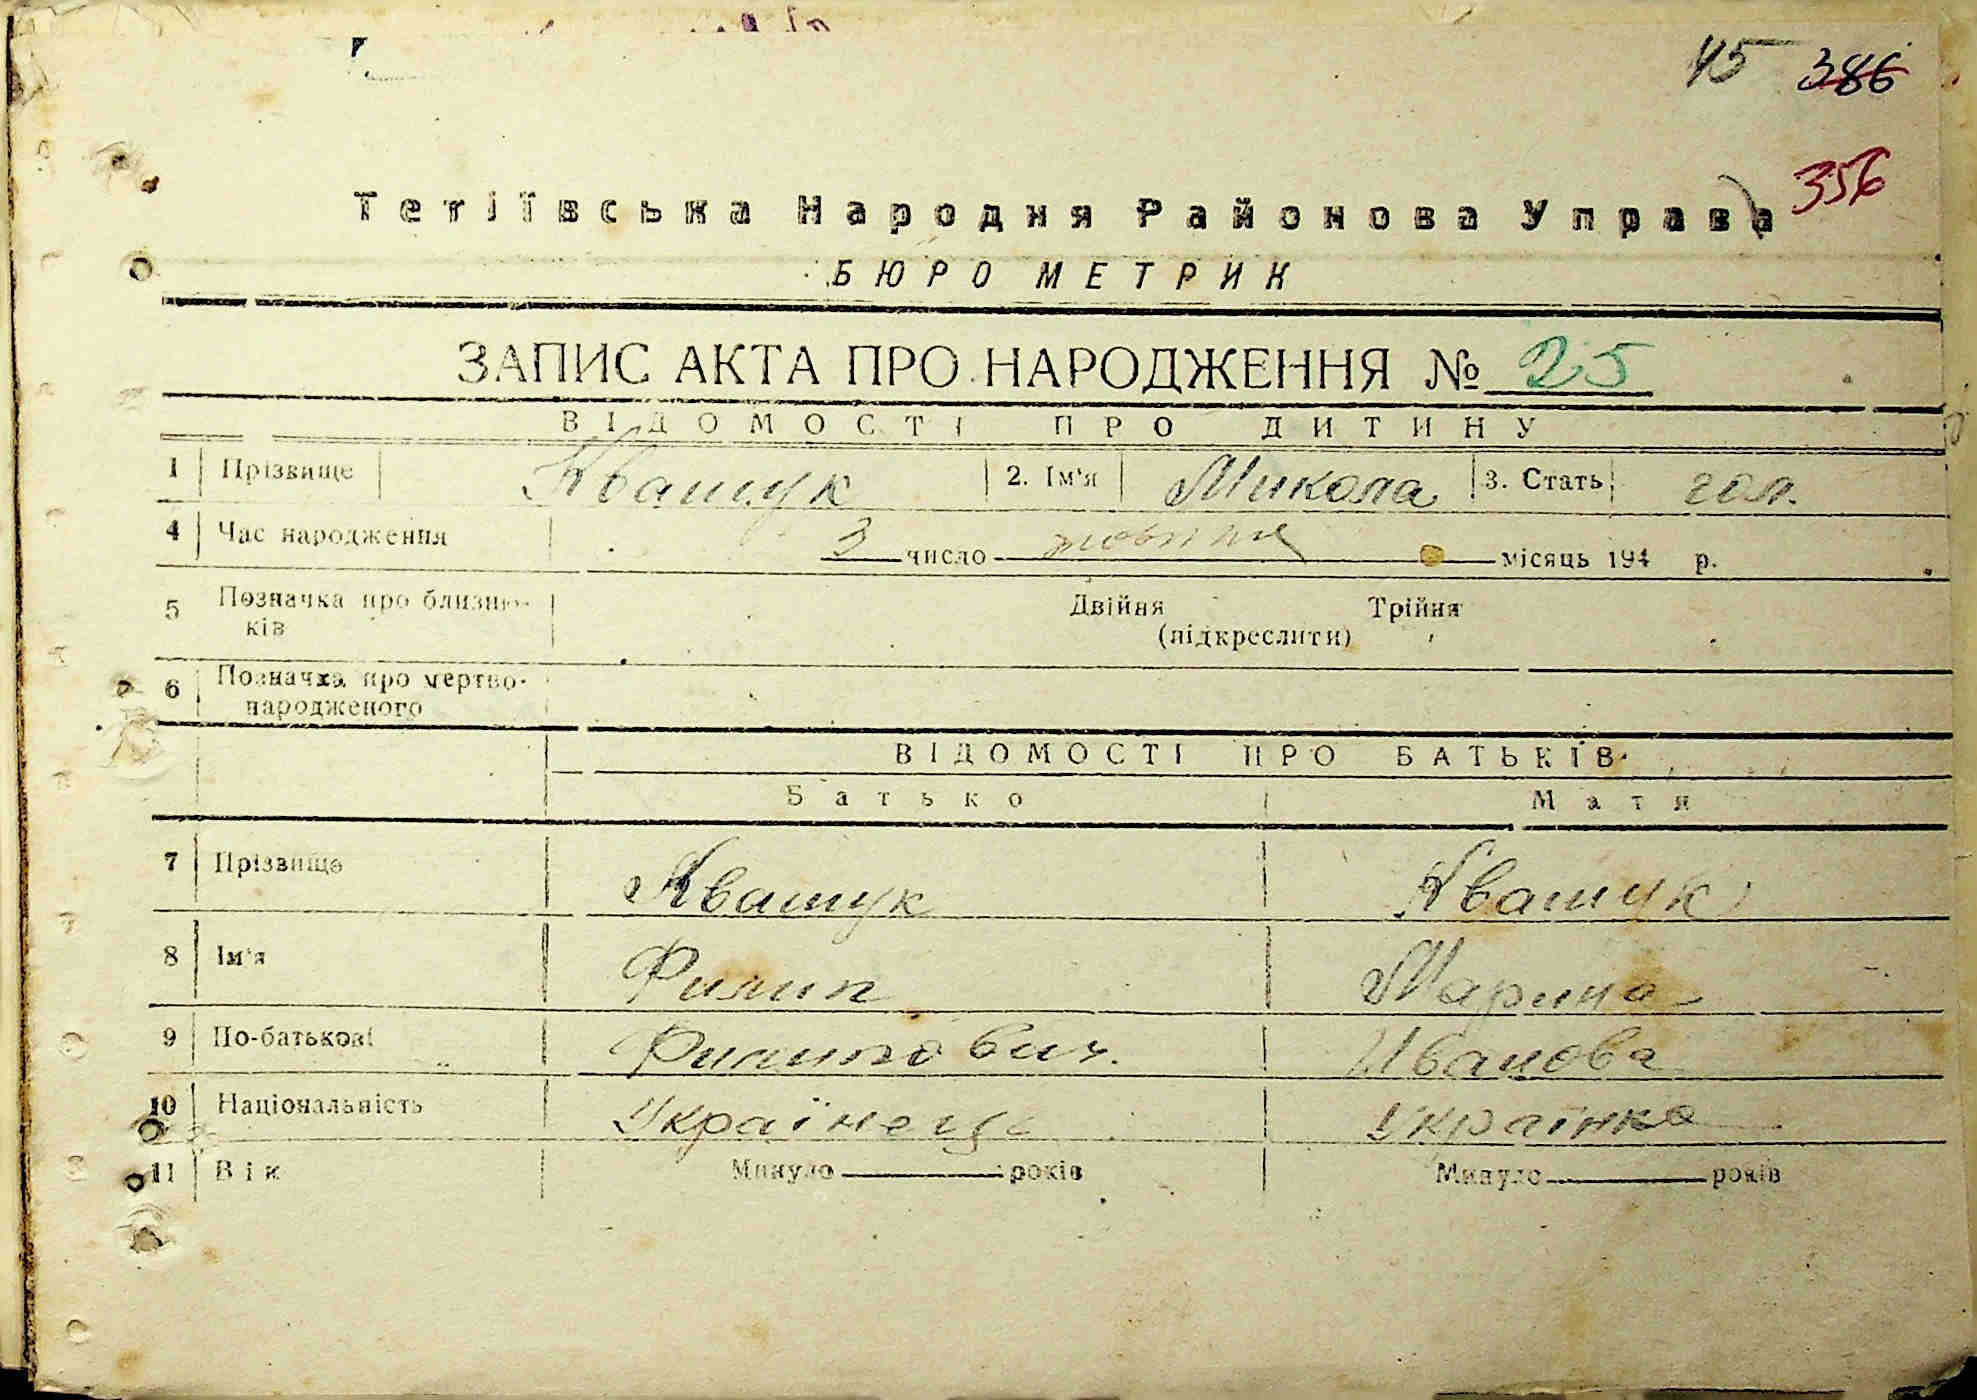 45 386
356
Тетіївська Народня Районова Управа
БЮРО МЕТРИК
ЗАПИС АКТА ПРО НАРОДЖЕННЯ № 25
ВІДОМОСТІ ПРО ДИТИНУ
1 Прізвище Квашук 2. Ім'я Микола 3. Стать чол.
4 Час народження 3 число жовтня місяць 194 р.
5 Позначка про близню- Двійня Трійня
ків (підкреслити)
6 Позначка про мертво-
народженого
ВІДОМОСТІ ПРО БАТЬКІВ
Батько Мати
7 Прізвище Квашук Квашук
8 Ім'я Филип Марина
9 По-батькові Филипович. Иванова
10 Національність Українець Українка
11 Вік Минуло років Минуло років